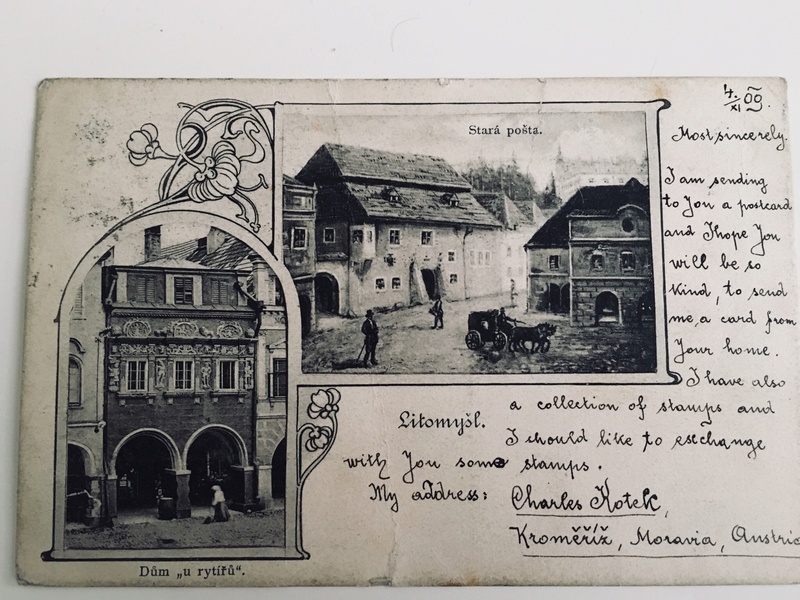 4./XI 09.
Stará pošta.
Most sincerely.
I am sending
to You a postcard
and I hope You
will be so
kind, to send
me, a card from
Your home.
I have also
a collection of stamps and
I should like to exchange
with You some stamps.
My address: Charles Kotek,
Kroměříž, Moravia, Austria
Litomyšl.
Dům „u rytířů“.